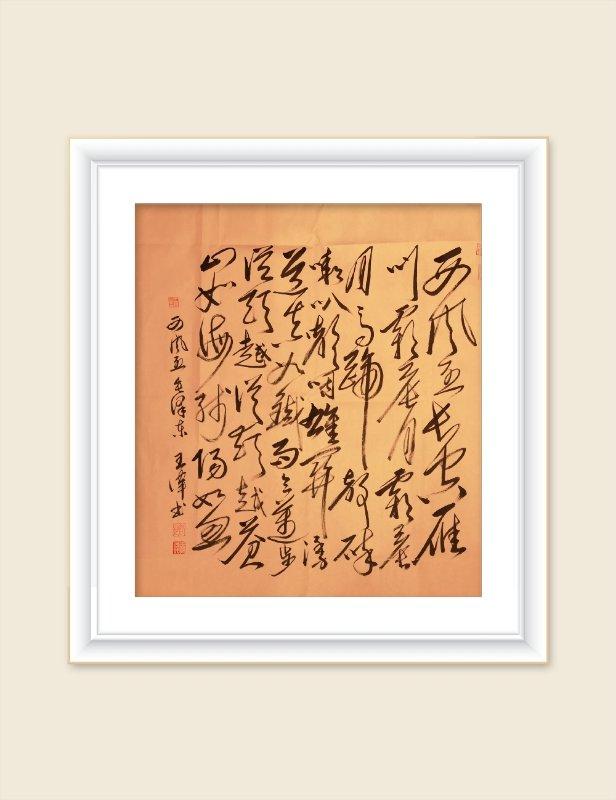 西风烈长空雁
叫霜晨月霜晨
月马蹄声碎
喇叭声咽雄关漫
道真如铁而今迈步
从头越从头越苍
山如海残阳如血
西风烈 毛泽东 王 书